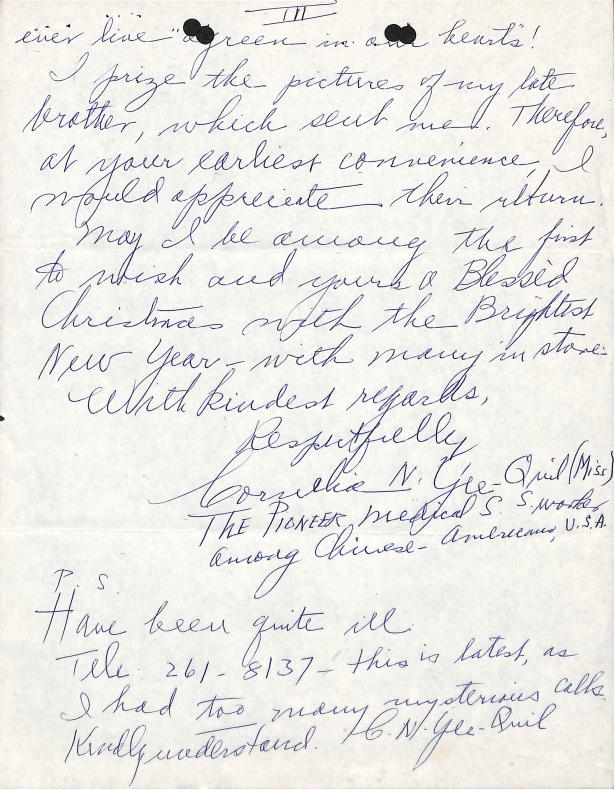 III
ever live "agreen in our hearts"!
I prize the pictures of my late
brother, which sent me. Therefore,
at your earliest convenience, I
would appreciate their return.
May I be among the first
to wish and yours a Blessed
Christmas with the Brightest
New Year - with many in store.
With kindest regards,
Respectfully
Cornelia N. Yee-Quil (Miss)
THE PIONEER Medical S. S. worker
among Chinese-Americans, U.S.A.
P. S.
Have been quite ill.
Tele. 261-8137 - this is latest, as
I had too many mysterious calls.
Kindly understand. C. N. Yee-Quil